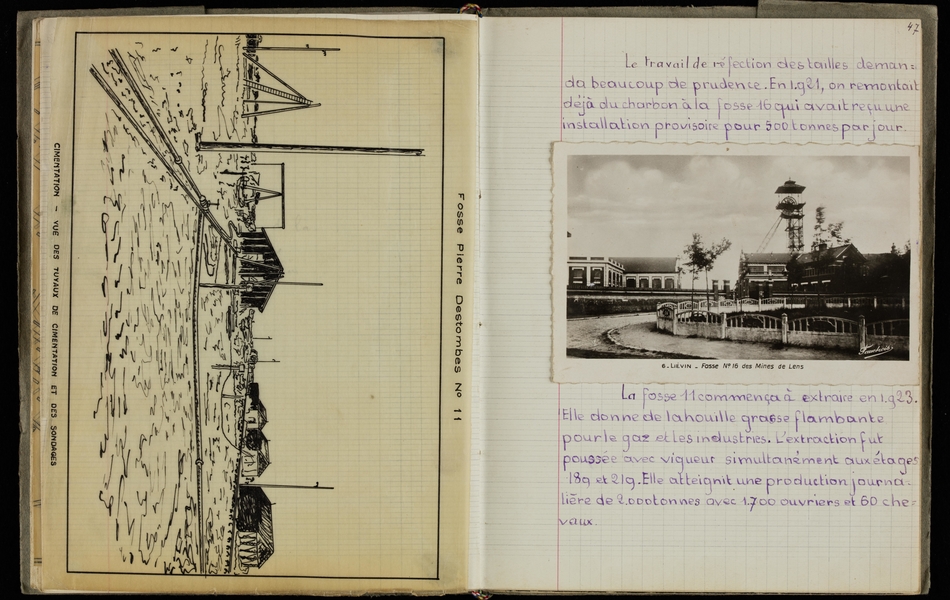 Fosse Pierre Destombes Nº 11
CIMENTATION - VUE DES TUYAUX DE CIMENTATION ET DES SONDAGES
47
Le travail de réfection des tailles deman-
da beaucoup de prudence. En 1.921, on remontait
déjà du charbon à la fosse 16 qui avait reçu une
installation provisoire pour 500 tonnes par jour.
6. LIÉVIN - Fosse Nº 16 des Mines de Lens
La fosse 11 commença à extraire en 1.923.
Elle donne de la houille grasse flambante
pour le gaz et les industries. L'extraction fut
poussée avec vigueur simultanément aux étages
189 et 219. Elle atteignit une production journa-
lière de 2.000 tonnes avec 1.700 ouvriers et 60 che-
vaux.